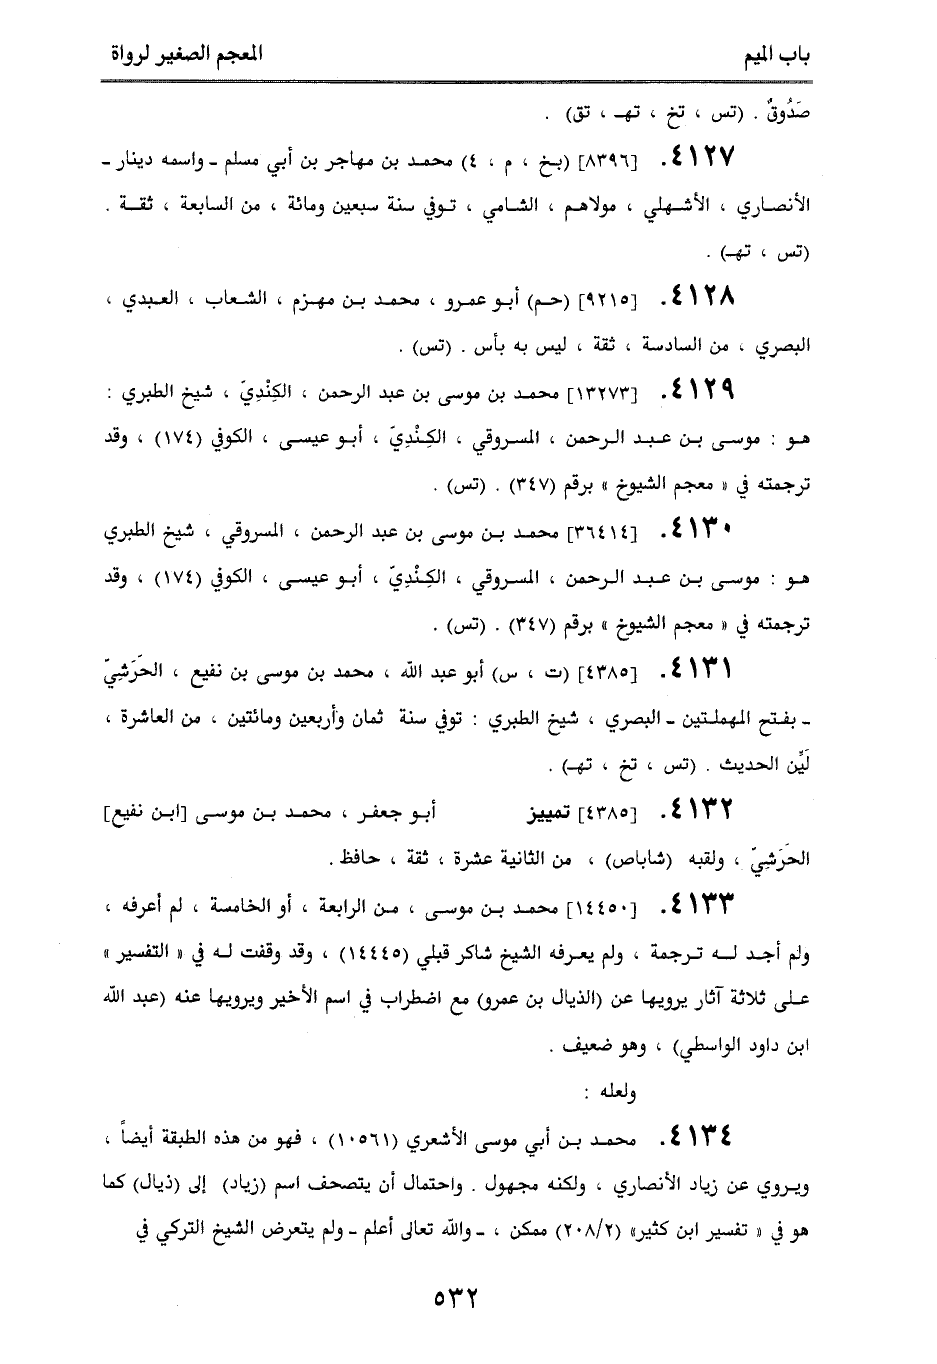 باب الميم
المعجم الصغير لرواة
صَدُوقٌ . (تس ، تخ ، تهـ ، تق) .
٤١٢٧. [٨٣٩٦] (بخ ، م ، ٤) محمد بن مهاجر بن أبي مسلم ـ واسمه دينار ـ
الأنصاري ، الأشهلي ، مولاهم ، الشامي ، توفي سنة سبعين ومائة ، من السابعة ، ثقة .
(تس ، تهـ) .
٤١٢٨. [٩٢١٥] (حم) أبو عمرو ، محمد بن مهزم ، الشعاب ، العبدي ،
البصري ، من السادسة ، ثقة ، ليس به بأس . (تس) .
٤١٢٩. [١٣٢٧٣] محمد بن موسى بن عبد الرحمن ، الكِنْدِيّ ، شيخ الطبري :
هو : موسى بن عبد الرحمن ، المسروقي ، الكِنْدِيّ ، أبو عيسى ، الكوفي (١٧٤) ، وقد
ترجمته في « معجم الشيوخ » برقم (٣٤٧) . (تس) .
٤١٣٠. [٣٦٤١٤] محمد بن موسى بن عبد الرحمن ، المسروقي ، شيخ الطبري
هو : موسى بن عبد الرحمن ، المسروقي ، الكِنْدِيّ ، أبو عيسى ، الكوفي (١٧٤) ، وقد
ترجمته في « معجم الشيوخ » برقم (٣٤٧) . (تس) .
٤١٣١. [٤٣٨٥] (ت ، س) أبو عبد الله ، محمد بن موسى بن نفيع ، الحَرَشِيّ
ـ بفتح المهملتين ـ البصري ، شيخ الطبري : توفي سنة ثمان وأربعين ومائتين ، من العاشرة ،
لَيِّن الحديث . (تس ، تخ ، تهـ) .
٤١٣٢. [٤٣٨٥] تمييز أبو جعفر ، محمد بن موسى [ابن نفيع]
الحَرَشِيّ ، ولقبه (شاباص) ، من الثانية عشرة ، ثقة ، حافظ .
٤١٣٣. [١٤٤٥٠] محمد بن موسى ، من الرابعة ، أو الخامسة ، لم أعرفه ،
ولم أجد له ترجمة ، ولم يعرفه الشيخ شاكر قبلي (١٤٤٤٥) ، وقد وقفت له في « التفسير »
على ثلاثة آثار يرويها عن (الذيال بن عمرو) مع اضطراب في اسم الأخير ويرويها عنه (عبد الله
ابن داود الواسطي) ، وهو ضعيف .
ولعله :
٤١٣٤. محمد بن أبي موسى الأشعري (١٠٥٦١) ، فهو من هذه الطبقة أيضاً ،
ويروي عن زياد الأنصاري ، ولكنه مجهول . واحتمال أن يتصحف اسم (زياد) إلى (ذيال) كما
هو في « تفسير ابن كثير» (٢٠٨/٢) ممكن ، ـ والله تعالى أعلم ـ ولم يتعرض الشيخ التركي في
٥٣٢